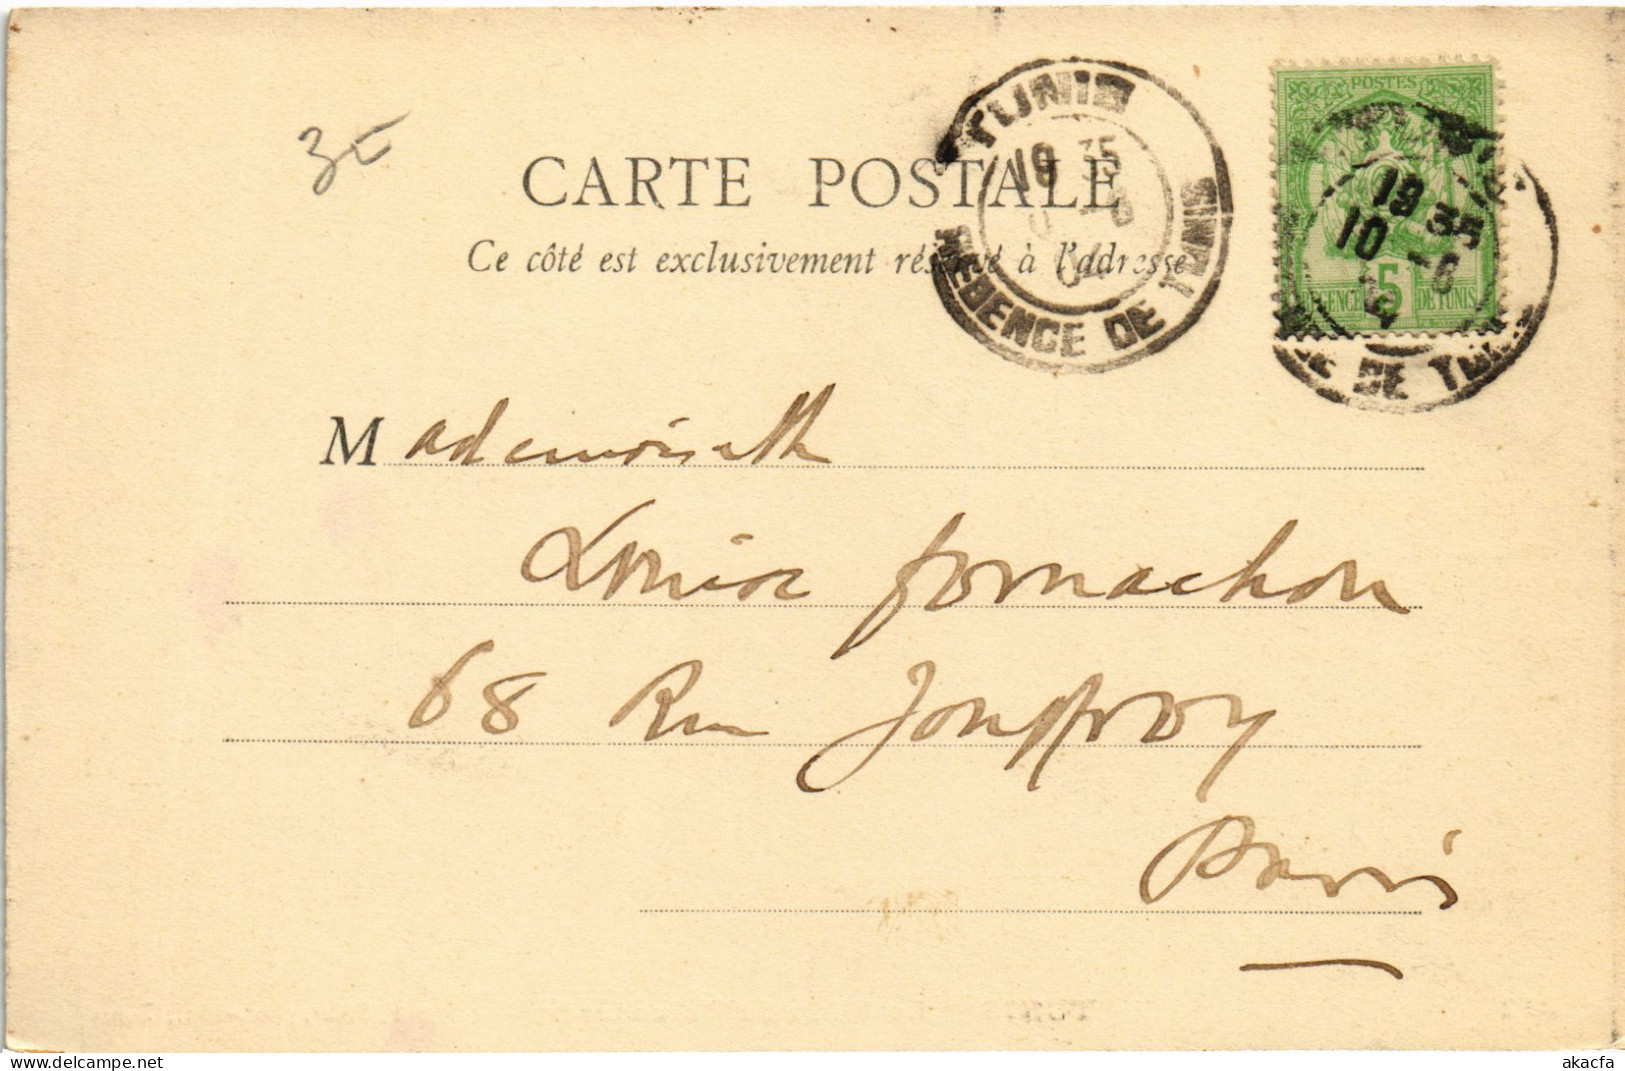 3E
CARTE POSTALE
Ce côté est exclusivement réservé à l'adresse
TUNIS
19 35
04
REGENCE DE TUNIS
POSTES
5
REGENCE DE TUNIS
19 35
10 -6
DE TUNIS
Mademoiselle
Louise Fornachon
68 Rue Jouffroy
Paris
akacfa